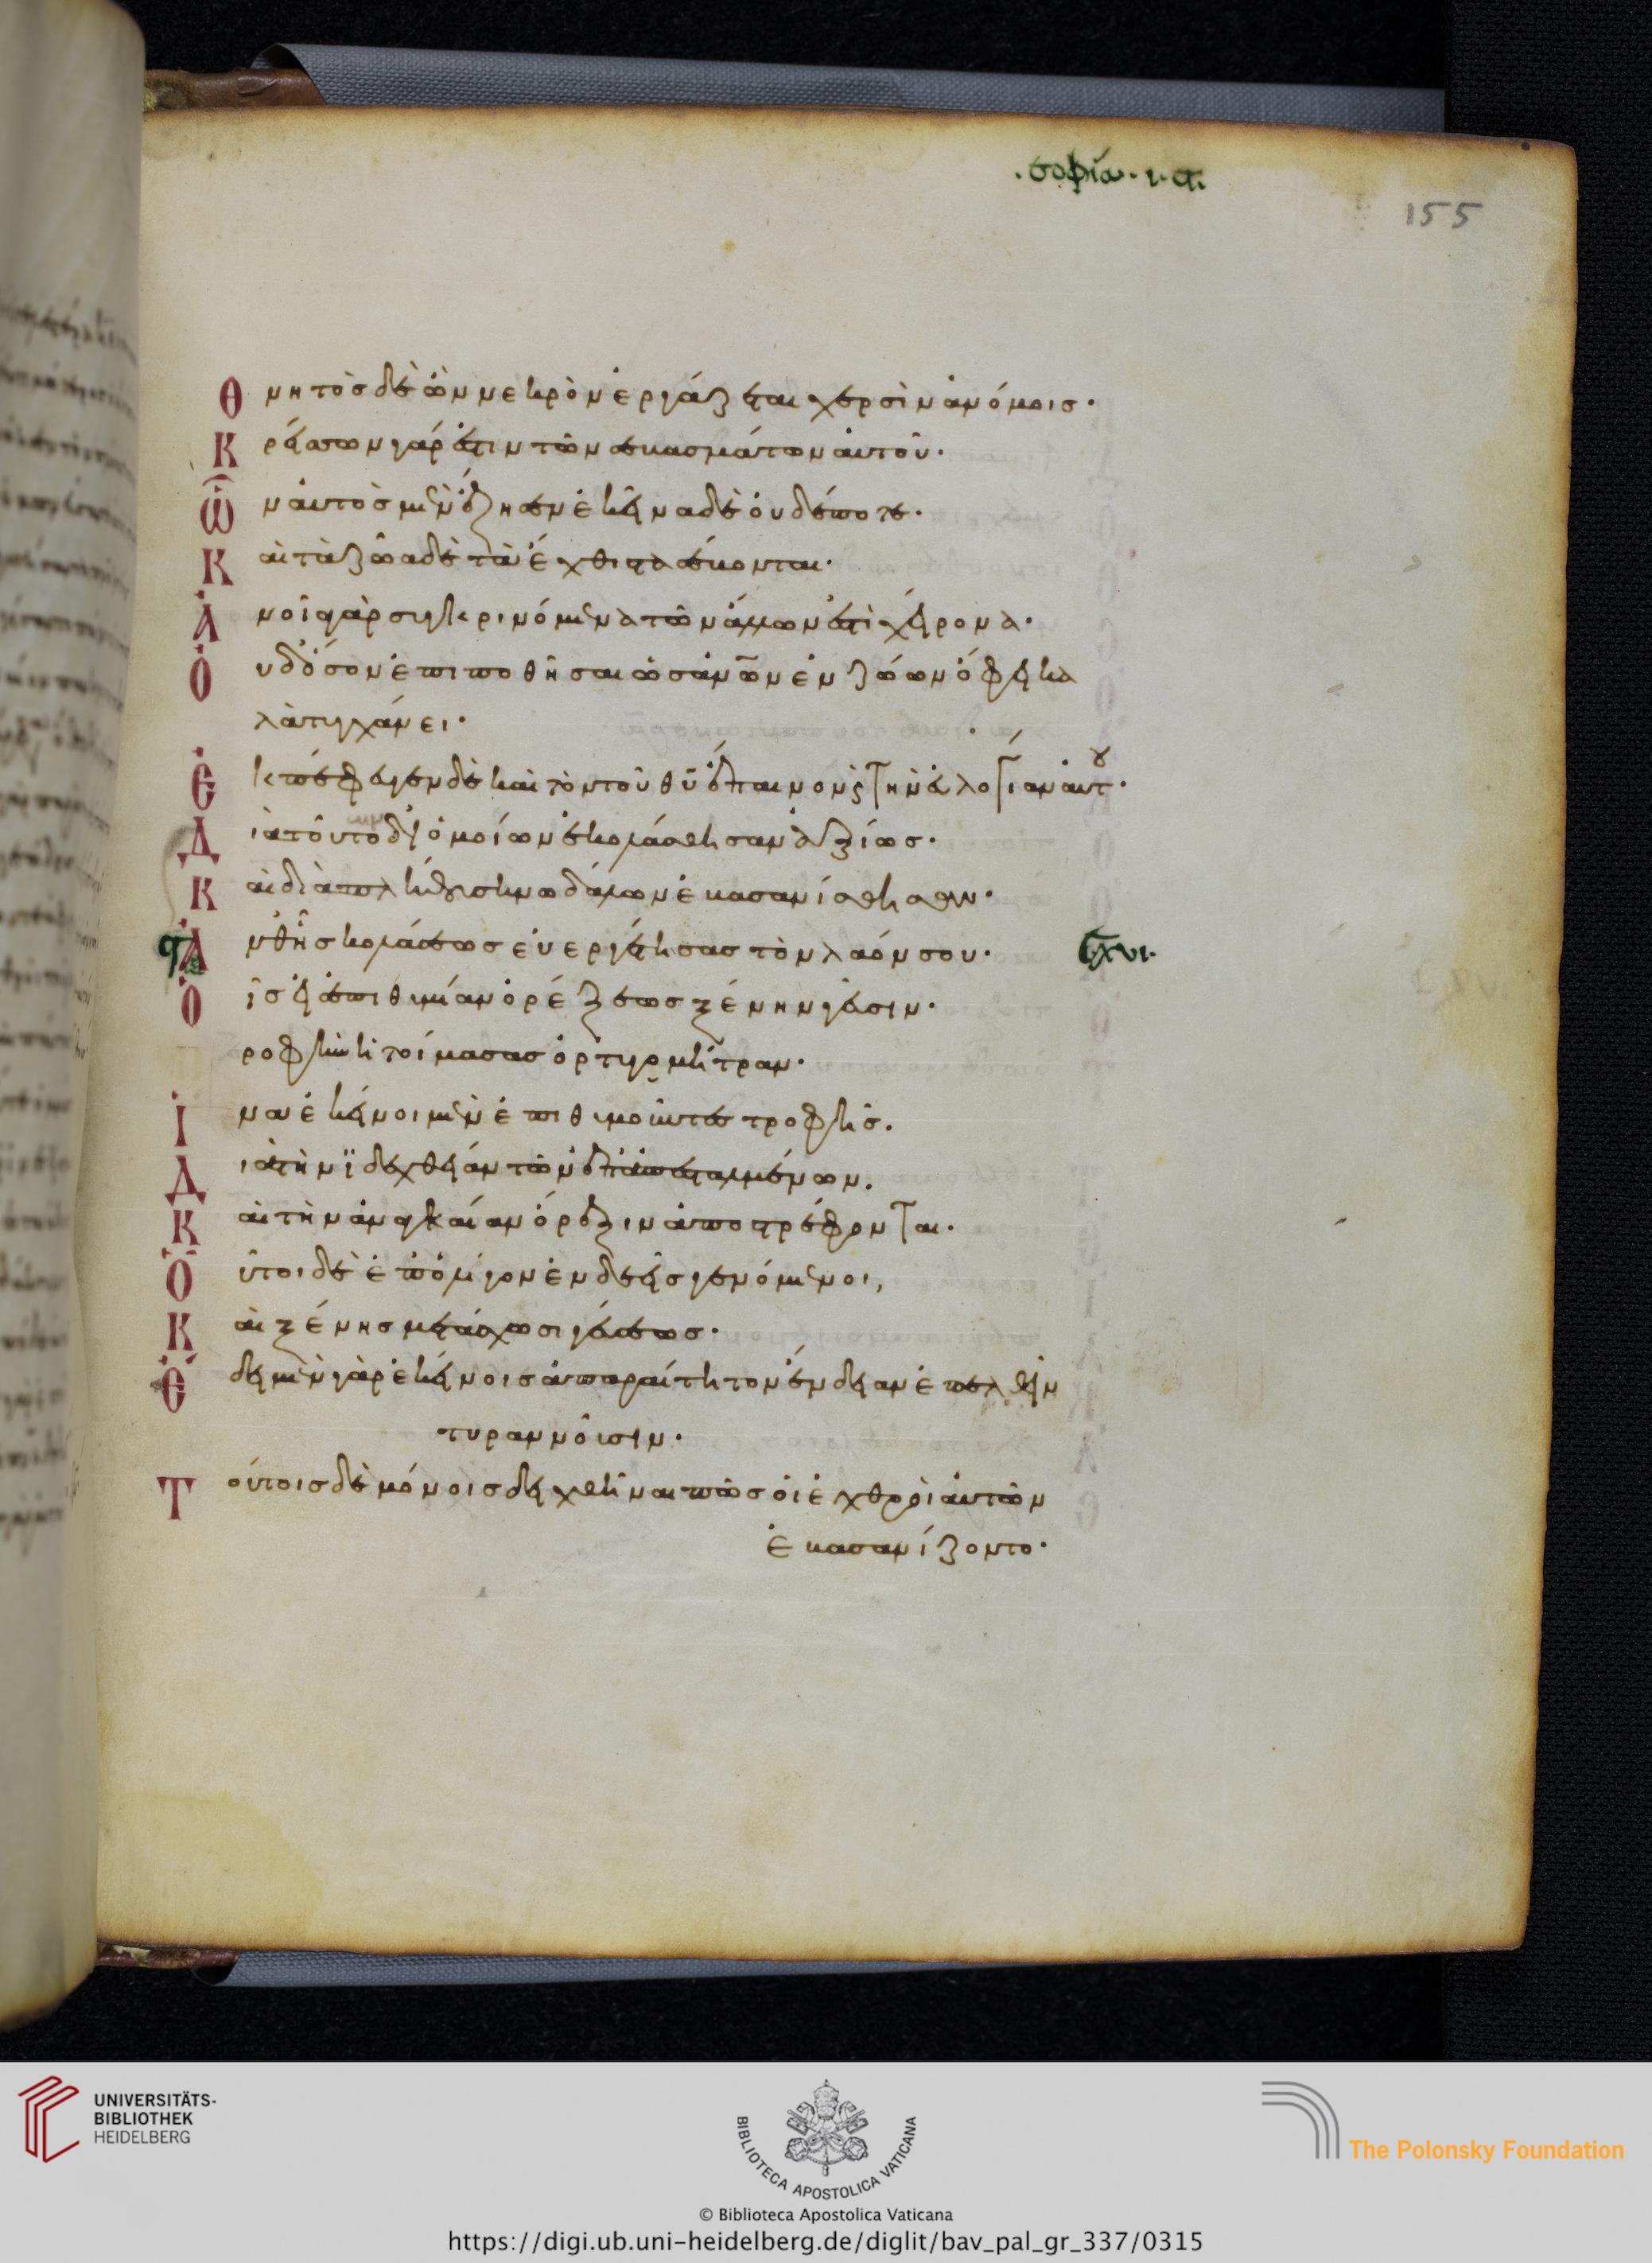 .σοφία. ι. α.
155
Θνητὸς δὲ ὢν νεκρὸν ἐργάζεται χερσὶν ἀνόμοις·
Κρείσσων γάρ ἐστιν τῶν σεβασμάτων αὐτοῦ·
Ὧν αὐτὸς μὲν ἔζησεν ἐκεῖνα δὲ οὐδέποτε·
Καὶ τὰ ζῶα δὲ τὰ ἔχθιστα σέβονται·
Ἀνοίᾳ γὰρ συγκρινόμενα τῶν ἄλλων ἐστὶ χείρονα·
Οὐδ' ὅσον ἐπιποθῆσαι ὡς ἀνῶν ἐν ζώων ὄψει κα
λὰ τυγχάνει·
Ἐκπέφευγεν δὲ καὶ τὸν τοῦ θῦ ἔπαινον ϗ τὴν εὐλογίαν αὐτοῦ·
Διὰ τοῦτο δι' ὁμοίων ἐκολάσθησαν ἀξίως·
Καὶ διὰ πλήθους κνωδάλων ἐβασανίσθησαν·
Ἀνθ' ἧς κολάσεως εὐεργέτησας τὸν λαόν σου·
Οἷς εἰς ἐπιθυμίαν ὀρέξεως ξένην γεῦσιν·
ροφὴν ἡτοίμασας ὀρτυγομήτραν·
Ἵνα ἐκεῖνοι μὲν ἐπιθυμοῦντες τροφῆς·
Διὰ τὴν ϊδεχθειαν τῶν ἐπαπεσταλμένων·
Καὶ τὴν ἀναγκαίαν ὄρεξιν ἀποστρέφονται·
Οὗτοι δὲ ἐπ' ὀλίγον ἐνδεεῖς γενόμενοι,
Καὶ ξένης μετάσχωσι γεύσεως·
Ἔδει μὲν γὰρ ἐκείνοις ἀπαραίτητον ἔνδειαν ἐπελθεῖν
τυραννοῦσιν·
Τούτοις δὲ μόνοις δειχθῆναι πῶς οἱ ἐχθροὶ αὐτῶν
ἐβασανίζοντο·
UNIVERSITÄTS-
BIBLIOTHEK
HEIDELBERG
BIBLIOTECA APOSTOLICA VATICANA
The Polonsky Foundation
© Biblioteca Apostolica Vaticana
https://digi.ub.uni-heidelberg.de/diglit/bav_pal_gr_337/0315